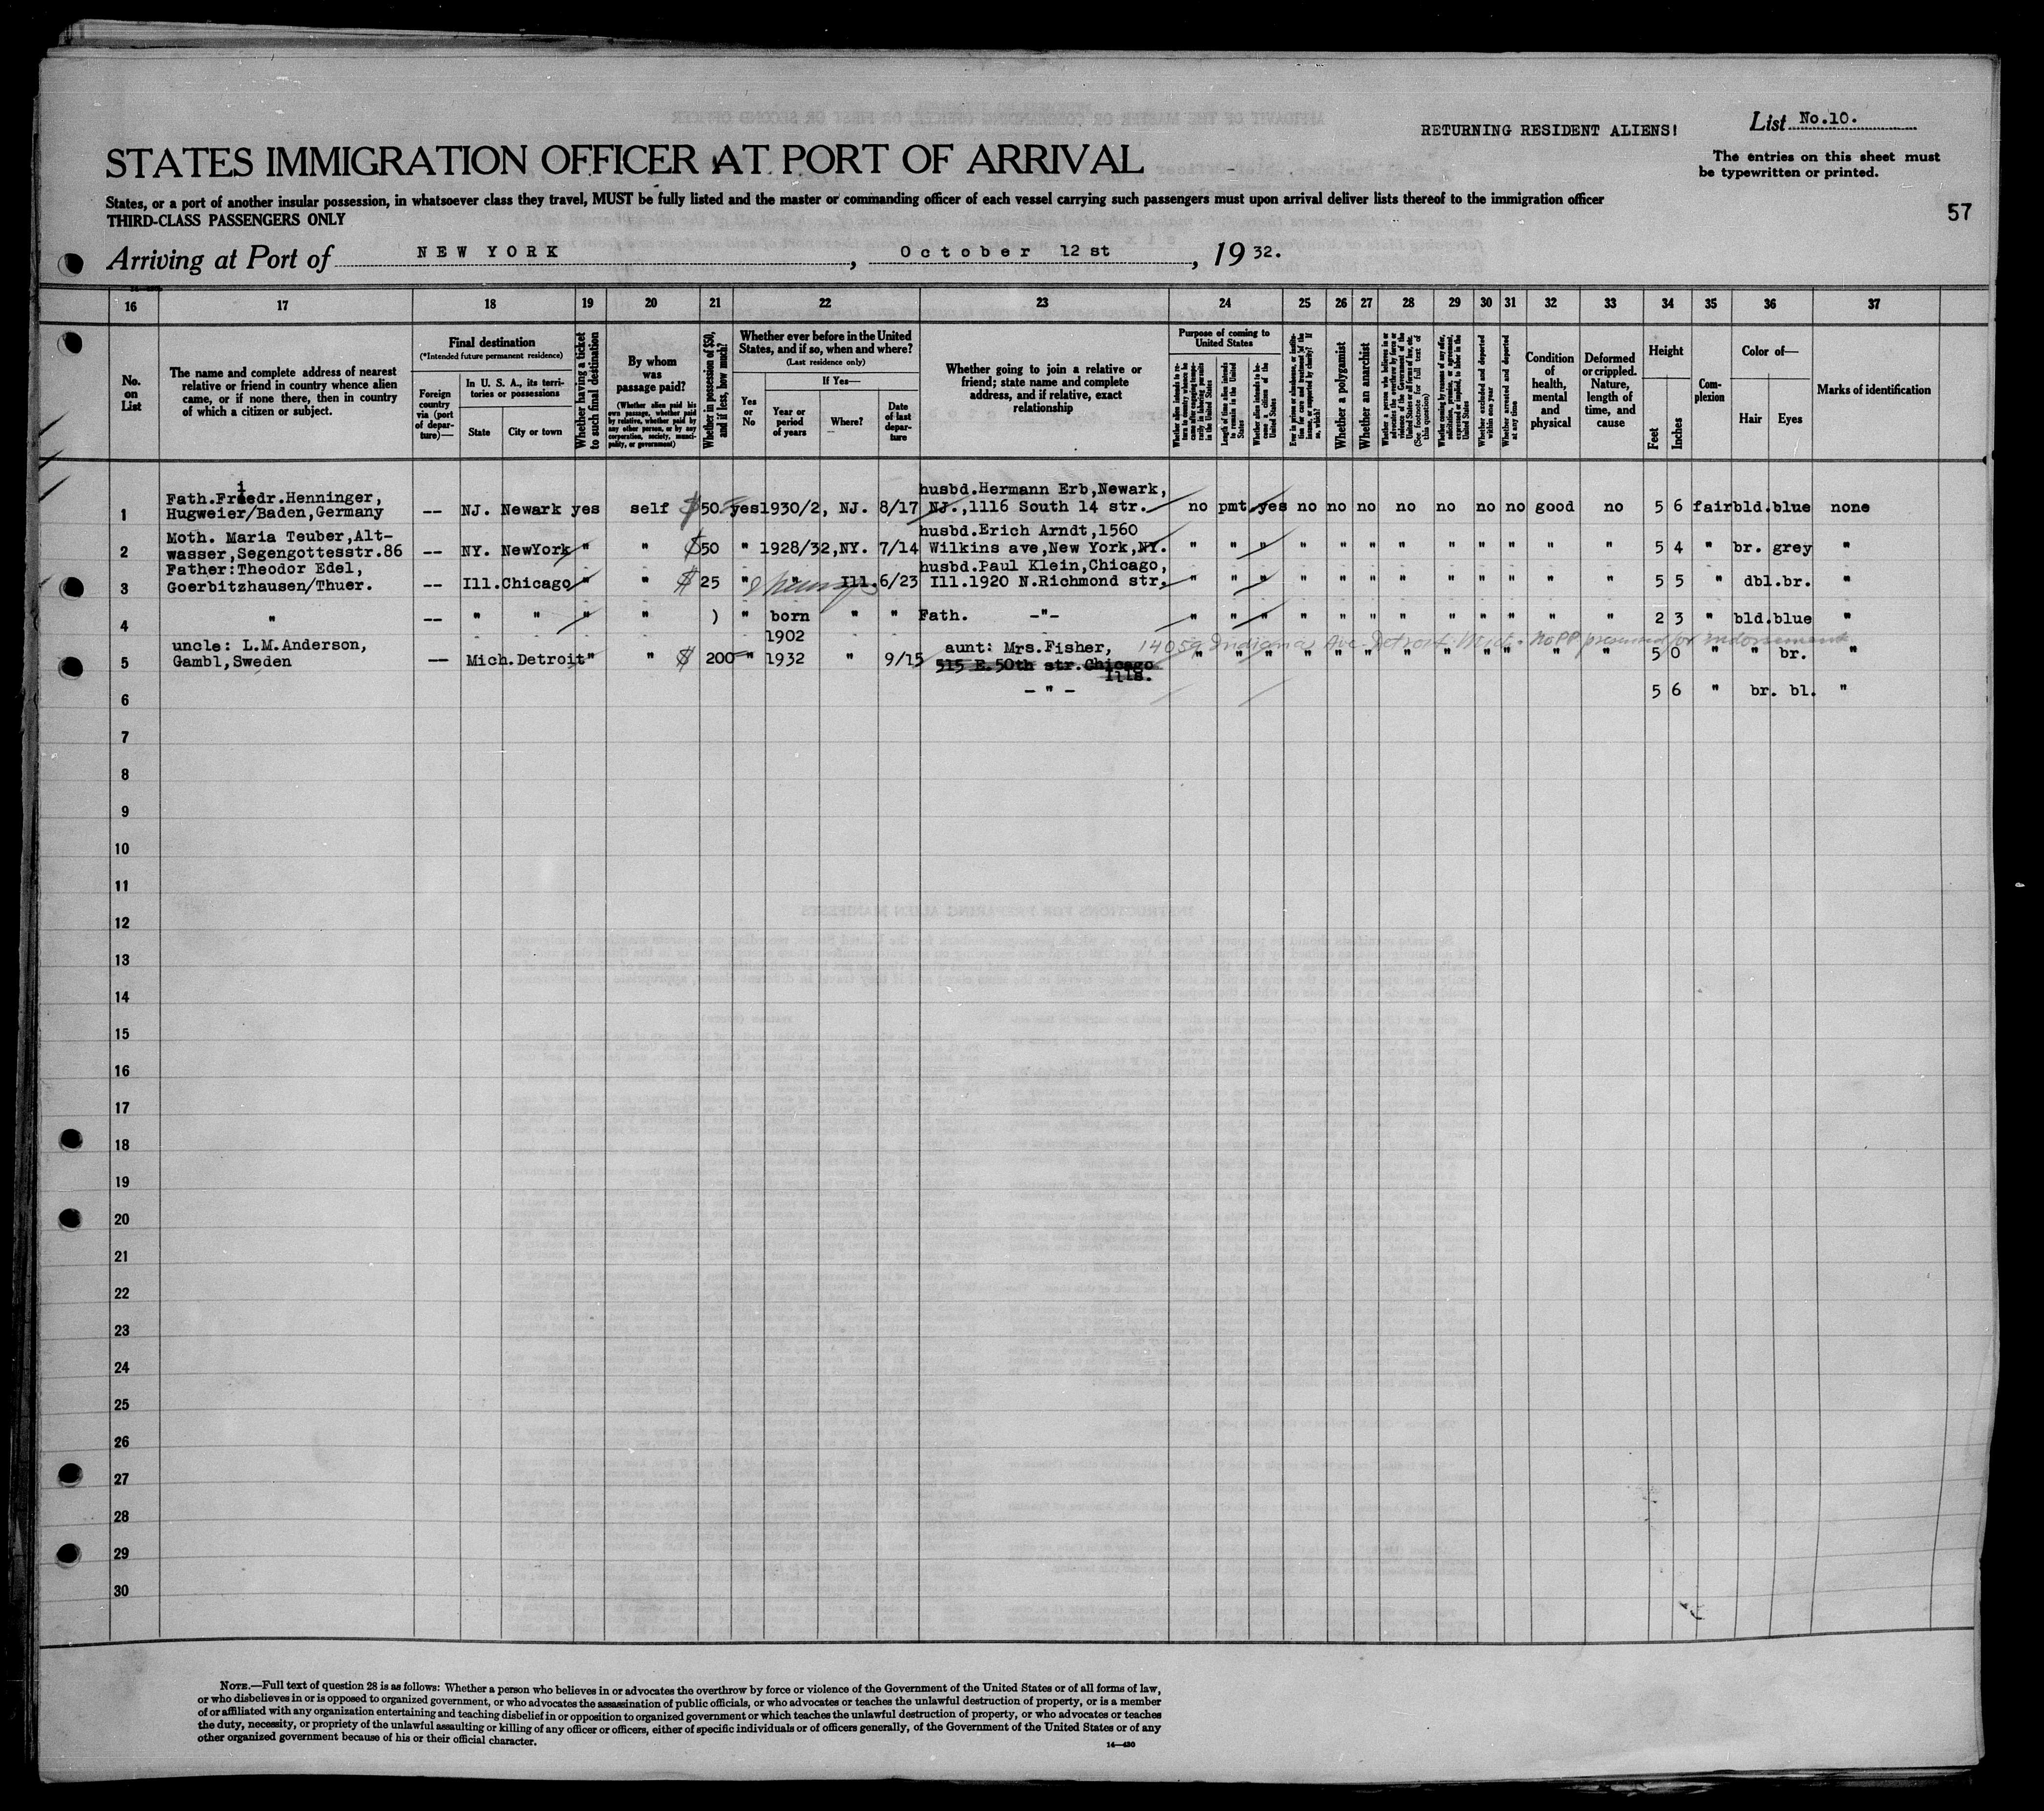 RETURNING RESIDENT ALIENS!
List No.10.
STATES IMMIGRATION OFFICER AT PORT OF ARRIVAL
The entries on this sheet must
be typewritten or printed.
States, or a port of another insular possession, in whatsoever class they travel, MUST be fully listed and the master or commanding officer of each vessel carrying such passengers must upon arrival deliver lists thereof to the immigration officer
THIRD-CLASS PASSENGERS ONLY
57
Arriving at Port of NEW YORK, October 12st, 1932.
16 17 18 19 20 21 22 23 24 25 26 27 28 29 30 31 32 33 34 35 36 37
No. on List
The name and complete address of nearest relative or friend in country whence alien came, or if none there, then in country of which a citizen or subject.
Final destination
(*Intended future permanent residence)
Foreign country via (port of departure)—
In U. S. A., its territories or possessions
State
City or town
Whether having a ticket to such final destination
By whom was passage paid?
(Whether alien paid his own passage, whether paid by relative, whether paid by any other person, or by any corporation, society, municipality, or government)
Whether in possession of $50, and if less, how much?
Whether ever before in the United States, and if so, when and where?
(Last residence only)
Yes or No
If Yes—
Year or period of years
Where?
Date of last departure
Whether going to join a relative or friend; state name and complete address, and if relative, exact relationship
Purpose of coming to United States
Whether alien intends to return to country whence he came after engaging temporarily in laboring pursuits in the United States
Length of time alien intends to remain in the United States
Whether alien intends to become a citizen of the United States
Ever in prison or almshouse, or institution for care and treatment of the insane, or supported by charity? If so, which?
Whether a polygamist
Whether an anarchist
Whether a person who believes in or advocates the overthrow by force or violence of the Government of the United States or all forms of law, etc. (See footnote for full text of this question)
Whether coming by reason of any offer, solicitation, promise, or agreement, expressed or implied, to labor in the United States
Whether excluded and deported within one year
Whether arrested and deported at any time
Condition of health, mental and physical
Deformed or crippled. Nature, length of time, and cause
Height
Feet
Inches
Complexion
Color of—
Hair
Eyes
Marks of identification
1 Fath.Friedr.Henninger, Hugweier/Baden,Germany -- NJ. Newark yes self $50. yes 1930/2, NJ. 8/17 husbd.Hermann Erb,Newark, NJ.,1116 South 14 str. no pmt. yes no no no no no no no good no 5 6 fair bld. blue none
2 Moth. Maria Teuber,Alt- wasser,Segengottesstr.86 -- NY. NewYork " " $50 " 1928/32,NY. 7/14 husbd.Erich Arndt,1560 Wilkins ave,New York,NY. " " " " " " " " " " " " 5 4 " br. grey "
3 Father:Theodor Edel, Goerbitzhausen/Thuer. -- Ill. Chicago " " $25 " " Ill. 6/23 husbd.Paul Klein,Chicago, Ill.1920 N.Richmond str. " " " " " " " " " " " " 5 5 " dbl.br. "
4 " -- " " " " ) " born " " Fath. -"- " " " " " " " " " " " " 2 3 " bld. blue "
5 uncle: L.M.Anderson, Gambl,Sweden -- Mich. Detroit " " $200 " 1902 1932 " 9/15 aunt: Mrs.Fisher, 515 E.50th str.Chicago Ills. 14059 Indiana Ave Detroit Mich - No PP presented for indorsement " " " " " " " " " " " " 5 0 " " br. "
6 - " - 5 6 " br. bl. "
7
8
9
10
11
12
13
14
15
16
17
18
19
20
21
22
23
24
25
26
27
28
29
30
NOTE.—Full text of question 28 is as follows: Whether a person who believes in or advocates the overthrow by force or violence of the Government of the United States or of all forms of law,
or who disbelieves in or is opposed to organized government, or who advocates the assassination of public officials, or who advocates or teaches the unlawful destruction of property, or is a member
of or affiliated with any organization entertaining and teaching disbelief in or opposition to organized government or which teaches the unlawful destruction of property, or who advocates or teaches
the duty, necessity, or propriety of the unlawful assaulting or killing of any officer or officers, either of specific individuals or of officers generally, of the Government of the United States or of any
other organized government because of his or their official character.
14—430